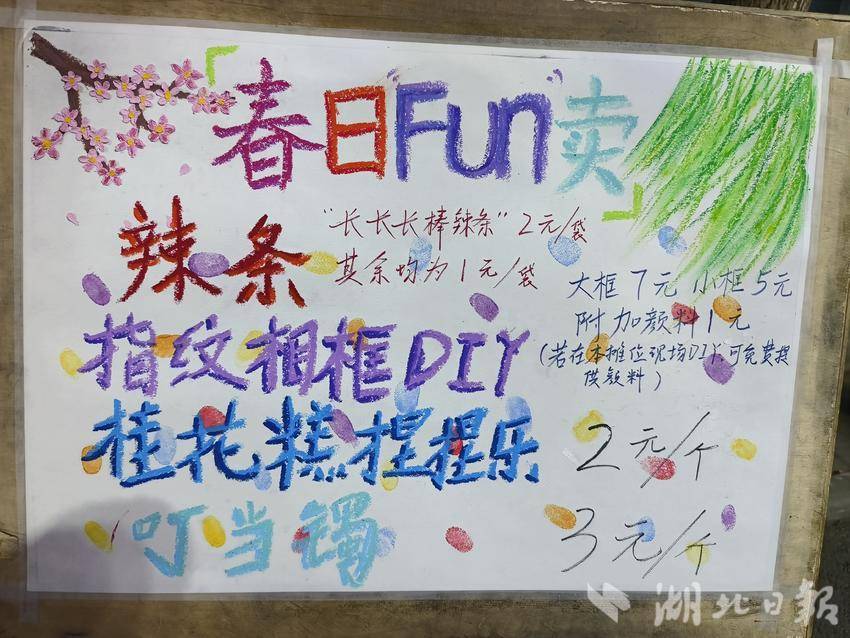 「春日"Fun"卖」
辣条 "长长长棒辣条" 2元/袋
其余均为1元/袋
指纹相框DIY 大框7元 小框5元
附加颜料1元
(若在本摊位现场DIY,可免费提
供颜料)
桂花糕捏捏乐 2元/个
叮当镯 3元/个
湖北日报